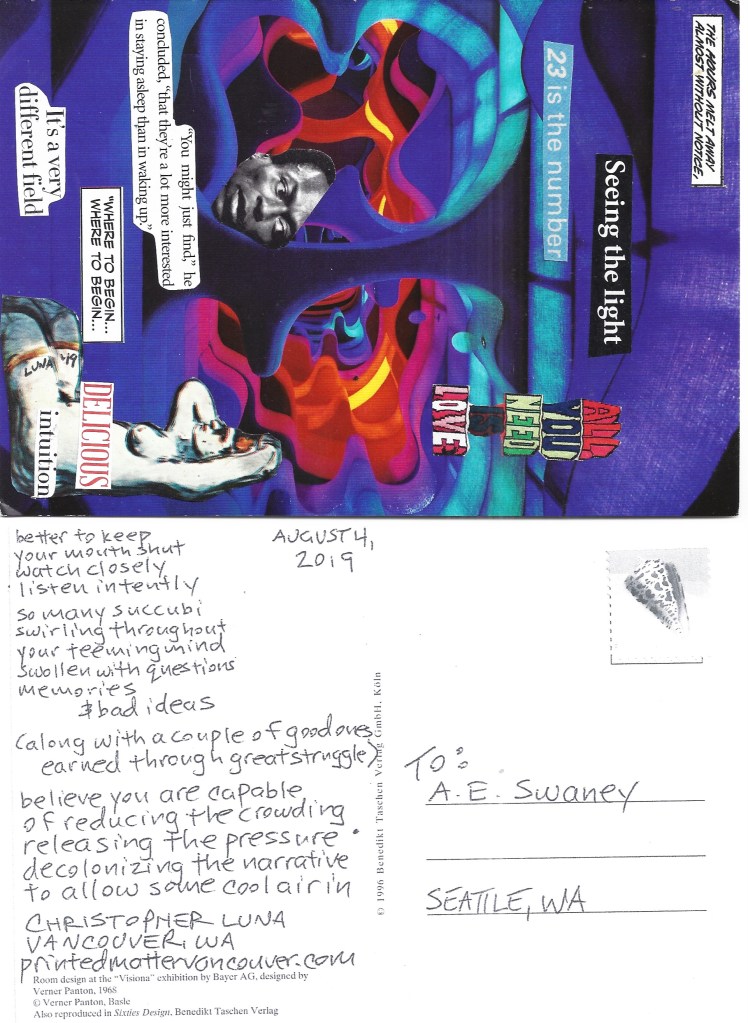 THE HOURS MELT AWAY
ALMOST WITHOUT NOTICE,
Seeing the light
23 is the number
ALL
YOU
NEED
IS
LOVE
"You might just find," he
concluded, "that they're a lot more interested
in staying asleep than in waking up."
"WHERE TO BEGIN...
WHERE TO BEGIN...
It's a very
different field
LUNA '19
DELICIOUS
intuition
better to keep
your mouth shut
watch closely
listen intently
so many succubi
swirling throughout
your teeming mind
swollen with questions
memories
& bad ideas
(along with a couple of good ones
earned through great struggle)
believe you are capable
of reducing the crowding
releasing the pressure
decolonizing the narrative
to allow some cool air in
CHRISTOPHER LUNA
VANCOUVER, WA
printedmattervancouver.com
Room design at the "Visiona" exhibition by Bayer AG, designed by
Verner Panton, 1968
© Verner Panton, Basle
Also reproduced in Sixties Design, Benedikt Taschen Verlag
AUGUST 4,
2019
© 1996 Benedikt Taschen Verlag GmbH, Köln
TO:
A. E. Swaney
SEATTLE, WA